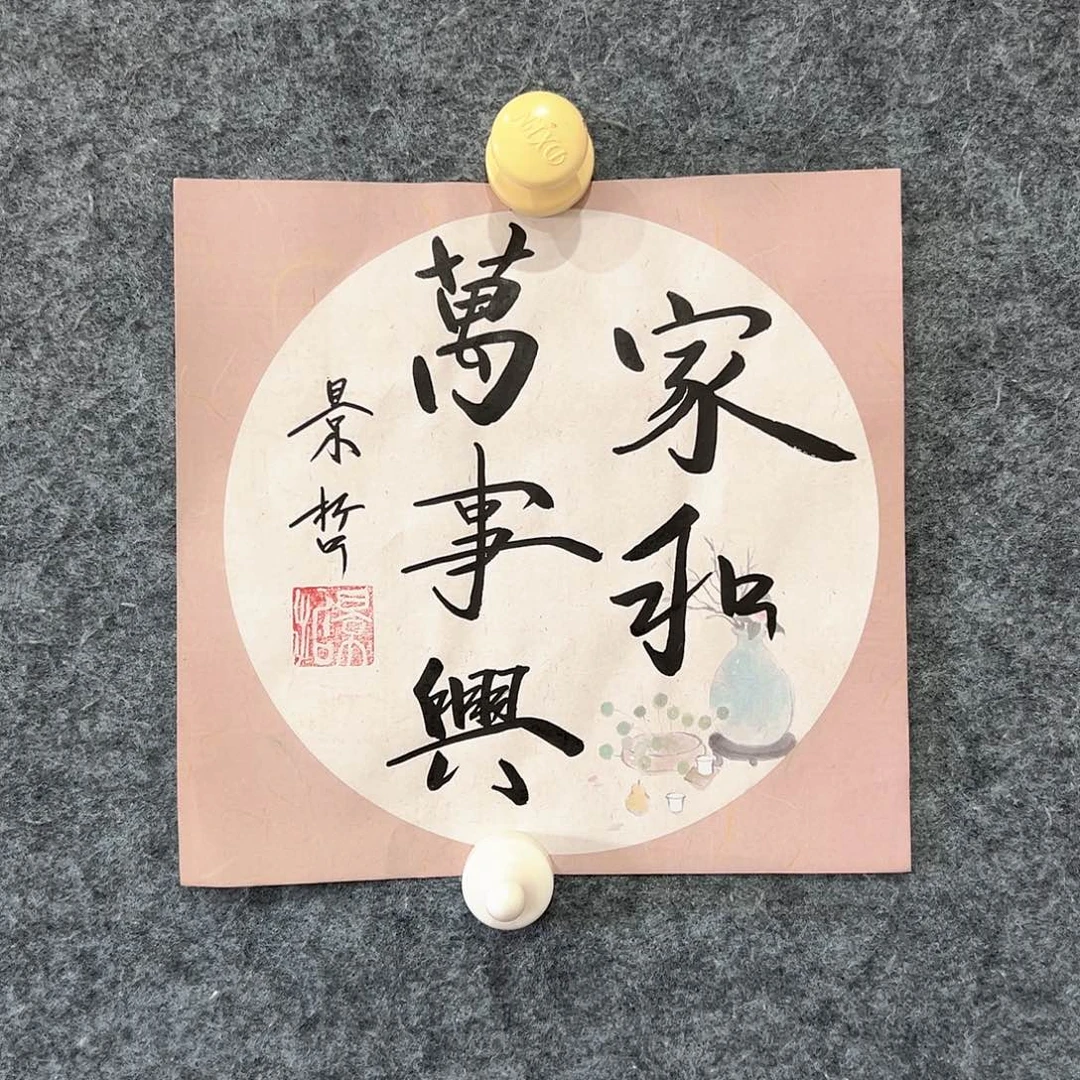 家和
萬事興
景哲
景哲
MIXO